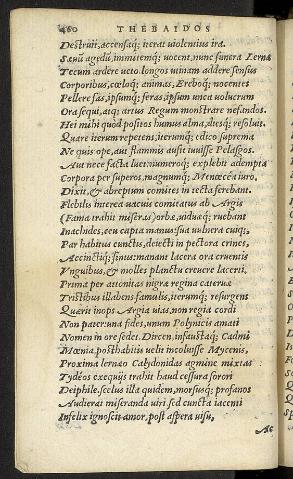 460 THEBAIDOS
Destruit, accensaq; iterat uiolentius ira.
Sæuũ agedũ, immitemq; uocent, nunc funera Lernæ
Tecum ardere ueto. longos utinam addere sensus
Corporibus, cœloq; animas, Ereboq; nocentes
Pellere fas, ipsumq; feras, ipsum unca uolucrum
Ora sequi, atq; artus Regum monstrare nefandos.
Hei mihi quòd positos humus alma, diesq; resoluit.
Quare iterum repetens, iterumq; edico suprema
Ne quis ope, aut flammis ausit iuuisse Pelasgos.
Aut nece facta luet: numeroq; explebit adempta
Corpora per superos, magnumq; Menœcea iuro,
Dixit, & abreptum comites in tecta ferebant.
Flebilis interea uacuis comitatus ab Argis
(Fama trahit miseras) orbæ, uiduæq; ruebant
Inachides, ceu capta manus: sua uulnera cuiq;,
Par habitus cunctis, deiecti in pectora crines,
Accinctiq; sinus: manant lacera ora cruentis
Vnguibus, & molles planctu creuere lacerti,
Prima per attonitas nigræ regina cateruæ
Tristibus illabens famulis, iterumq; resurgens
Quærit inops Argia uias, non regia cordi
Non pater: una fides, unum Polynicis amati
Nomen in ore sedet. Dircen, infaustaq; Cadmi
Mœnia, posthabitis uelit incoluisse Mycenis,
Proxima lernæo Calydonidas agmine mixtas
Tydeos exequijs trahit haud cessura sorori
Deiphile. scelus illa quidem, morsusq; profanos
Audierat miseranda uiri. sed cuncta iacenti
Infelix ignoscit amor, post aspera uisu,
Ac